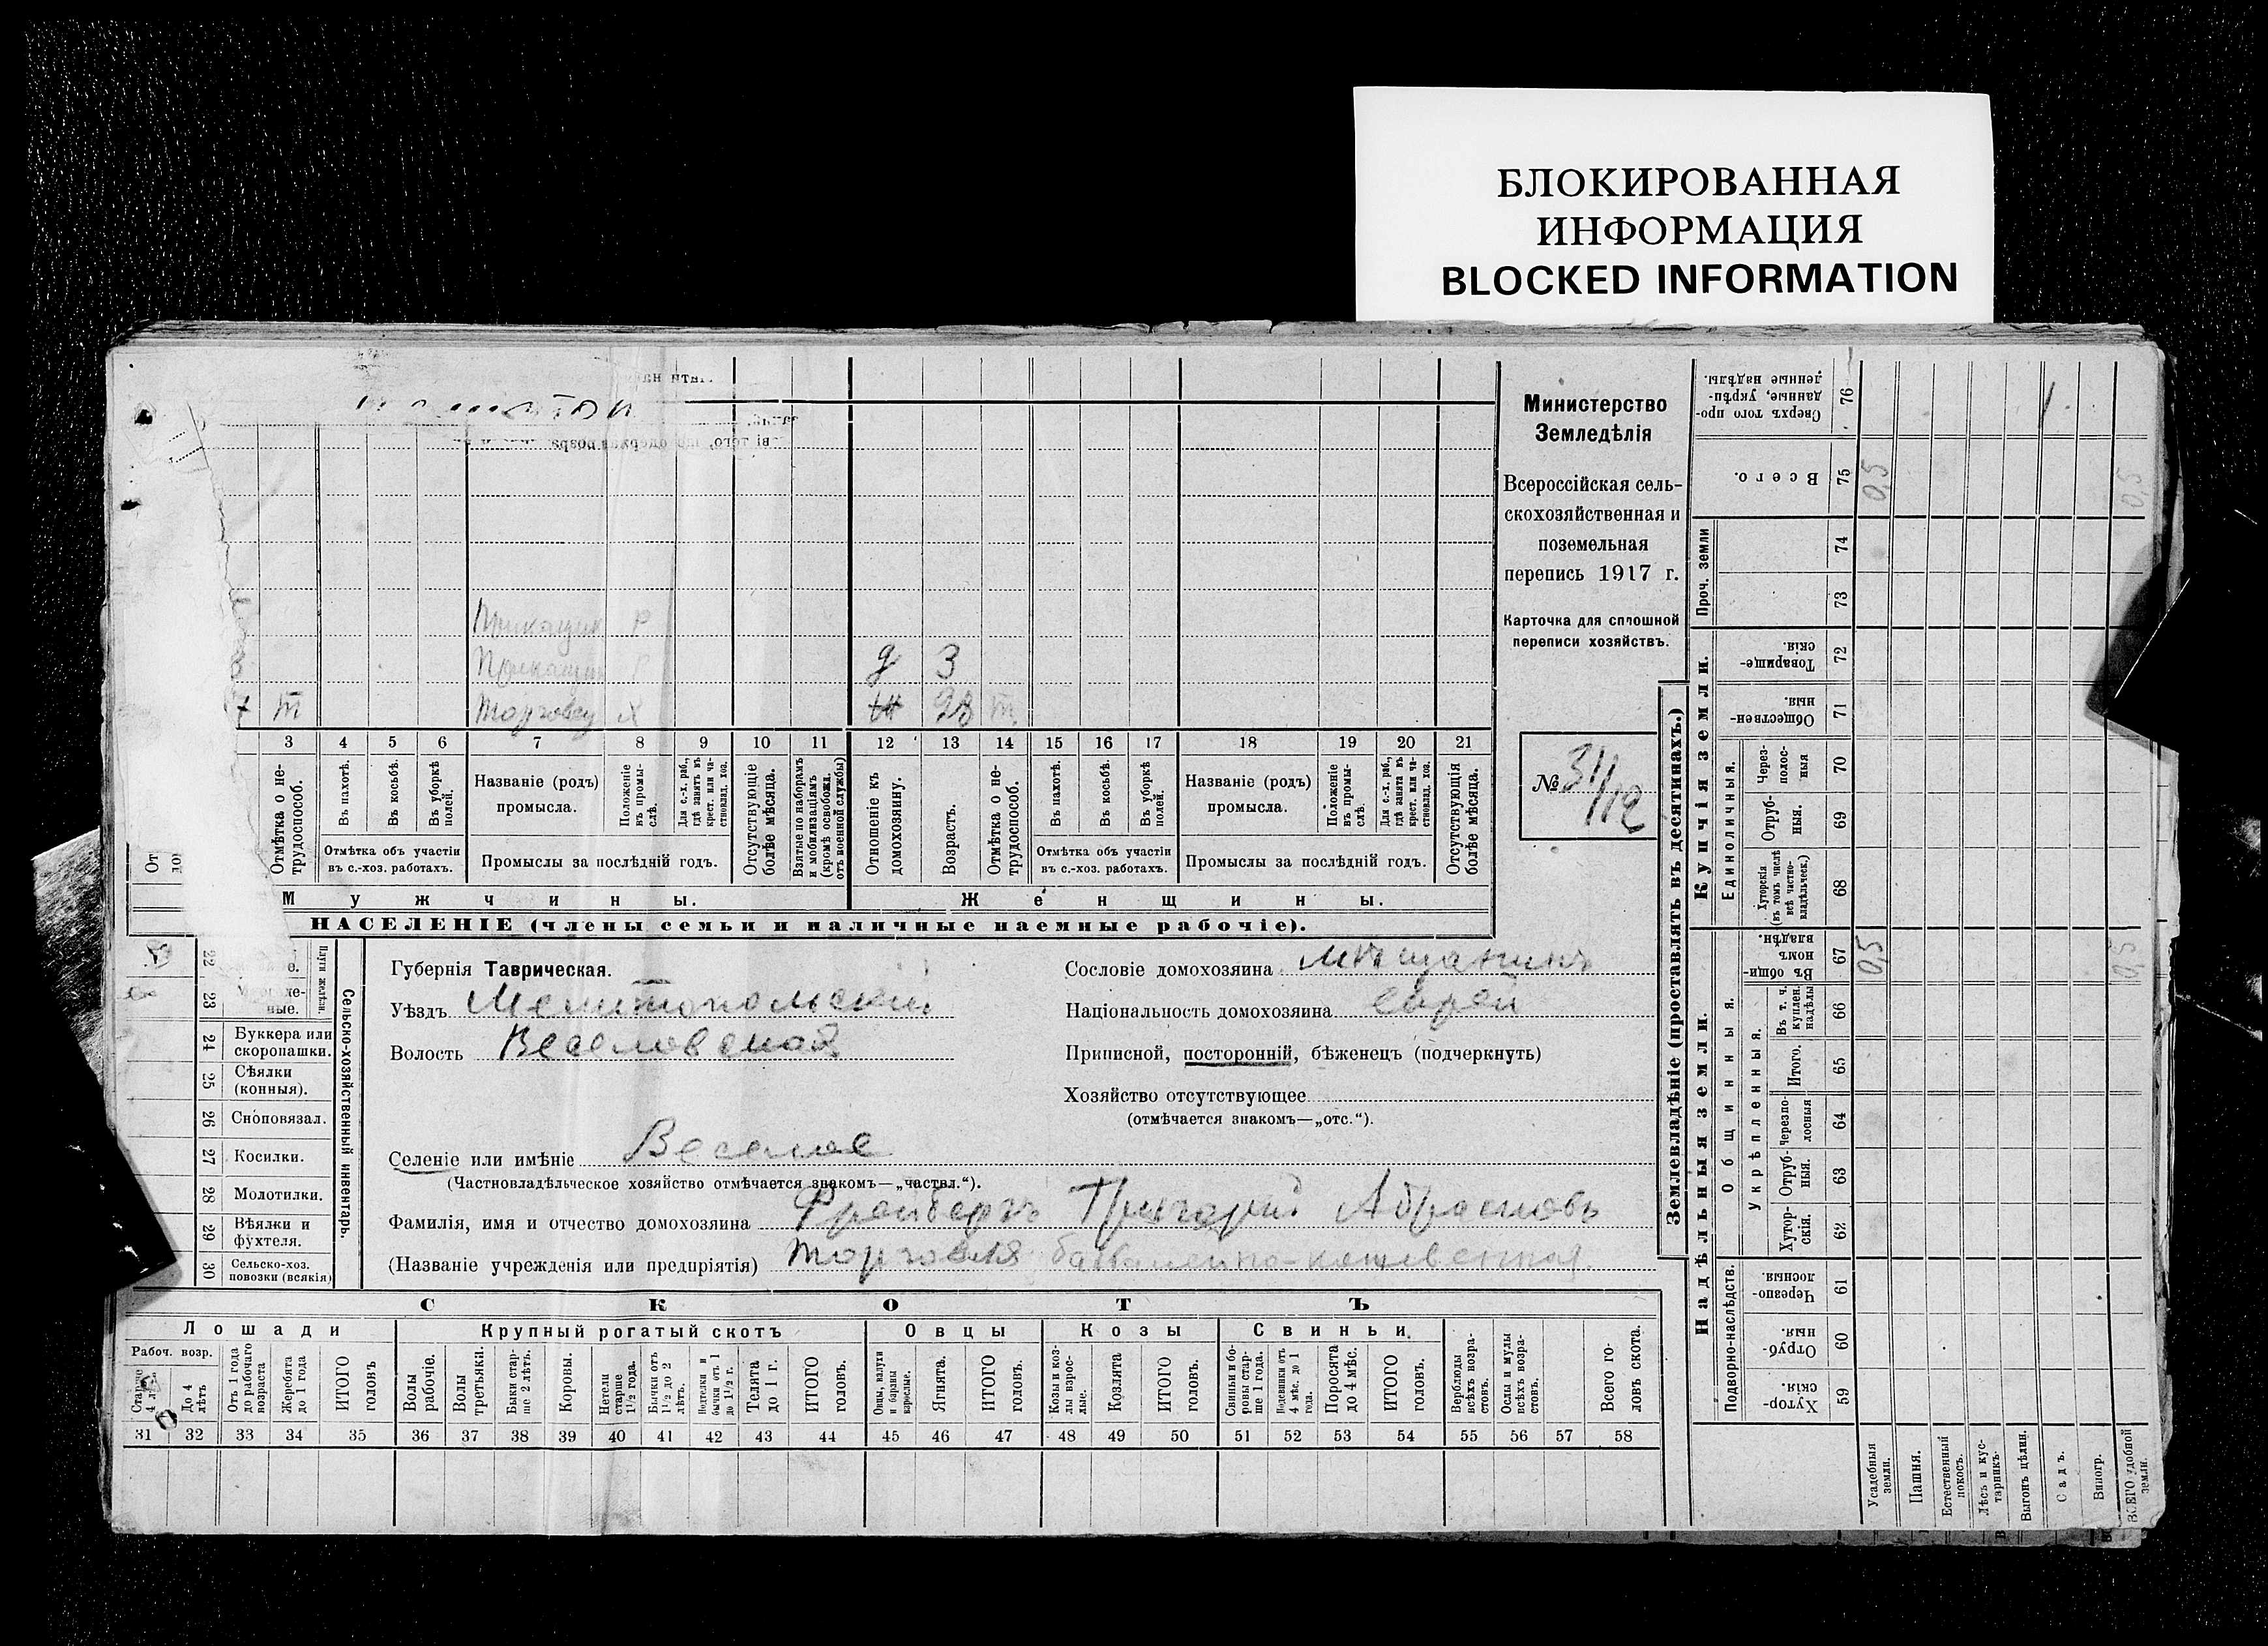 БЛОКИРОВАННАЯ
ИНФОРМАЦИЯ
BLOCKED INFORMATION
Министерство
Земледѣлія
Всероссійская сель-
скохозяйственная и
поземельная
перепись 1917 г.
Карточка для сплошной
переписи хозяйствъ.
№ 31/12
Прикащик Р
Прикащик Р
д 3
т Торговец Х 28 т
3 4 5 6 7 8 9 10 11 12 13 14 15 16 17 18 19 20 21
Отмѣтка о не-
трудоспособ.
Въ пахотѣ.
Въ косьбѣ.
Въ уборкѣ
полей.
Отмѣтка объ участіи
въ с.-хоз. работахъ.
Названіе (родъ)
промысла.
Положеніе
въ промы-
слѣ.
Для с.-х. раб.,
гдѣ занятъ въ
крест. или ча-
стновлад. хоз.
Промыслы за послѣдній годъ.
Отсутствующіе
болѣе мѣсяца.
Взятые по наборамъ
и мобилизаціямъ
(кромѣ освобожд.
отъ военной службы)
Отношеніе къ
домохозяину.
Возрастъ.
Отмѣтка о не-
трудоспособ.
Въ пахотѣ.
Въ косьбѣ.
Въ уборкѣ
полей.
Отмѣтка объ участіи
въ с.-хоз. работахъ.
Названіе (родъ)
промысла.
Положеніе
въ промы-
слѣ.
Для с.-х. раб.,
гдѣ занята въ
крест. или ча-
стновлад. хоз.
Промыслы за послѣдній годъ.
Отсутствующія
болѣе мѣсяца.
Мужчины.
Женщины.
НАСЕЛЕНІЕ (члены семьи и наличные наемные рабочіе).
Плуги желѣзн.
22
23
ные.
24 Буккера или
скоропашки.
25 Сѣялки
(конныя).
26 Сноповязал.
27 Косилки.
28 Молотилки.
29 Вѣялки и
фухтеля.
30 Сельско-хоз.
повозки (всякія)
Сельско-хозяйственный инвентарь.
Губернія Таврическая.
Уѣздъ Мелитопольскій
Волость Веселовская
Селеніе или имѣніе Веселое
(Частновладѣльческое хозяйство отмѣчается знакомъ—„частвл.“).
Фамилія, имя и отчество домохозяина Фрейбергъ Григорій Абрамовъ
(Названіе учрежденія или предпріятія) торговля бакалейно-кожевенная
Сословіе домохозяина мѣщанинъ
Національность домохозяина еврей
Приписной, посторонній, бѣженецъ (подчеркнуть)
Хозяйство отсутствующее
(отмѣчается знакомъ—„отс.“).
СКОТЪ
Лошади
Рабоч. возр.
Старше
4 лѣтъ
До 4
лѣтъ
Отъ 1 года
до рабочаго
возраста
Жеребята
до 1 года
ИТОГО
головъ
Крупный рогатый скотъ
Волы
рабочіе.
Волы
третьяки.
Быки стар-
ше 2 лѣтъ.
Коровы.
Нетели
старше
1½ года.
Бычки отъ
1½ до 2
лѣтъ.
Подтелки и
бычки отъ 1
до 1½ г.
Телята
до 1 г.
ИТОГО
головъ.
Овцы
Овцы, валухи
и бараны
взрослые.
Ягнята.
ИТОГО
головъ.
Козы
Козы и коз-
лы взрос-
лые.
Козлята
ИТОГО
головъ.
Свиньи.
Свиньи и бо-
ровы стар-
ше 1 года.
Подсвинки отъ
4 мѣс. до 1
года.
Поросята
до 4 мѣс.
ИТОГО
головъ.
Верблюды
всѣхъ возра-
стовъ.
Ослы и мулы
всѣхъ возра-
стовъ.
Всего го-
ловъ скота.
31 32 33 34 35 36 37 38 39 40 41 42 43 44 45 46 47 48 49 50 51 52 53 54 55 56 57 58
Землевладѣніе (проставлять въ десятинахъ.)
Сверхъ того про-
данные, укрѣп-
ленные надѣлы.
76
Всего.
75 0,5 0,5
Проч. земли
74
73
Купчія земли.
Товарище-
скія.
72
Обществен-
ныя.
71
Единоличныя.
Через-
полос-
ныя
70
Отруб-
ныя.
69
Хуторскія
(въ томъ числѣ
всѣ частно-
владѣльческ.)
68
Надѣльныя земли.
Общинныя.
Въ общин-
номъ
владѣн.
67 0,5 0,5
Укрѣпленныя.
Въ т. ч.
куплен.
надѣлы
66
Итого.
65
Черезпо-
лосныя
64
Отруб-
ныя.
63
Хутор-
скія.
62
Подворно-наслѣдств.
Черезпо-
лосныя.
61
Отруб-
ныя.
60
Хутор-
скія.
59
Усадебныя
земли.
Пашня.
Естественный
покосъ.
Лѣсъ и кус-
тарникъ.
Выгонъ цѣлин.
Садъ.
Виногр.
ВСЕГО удобной
земли.